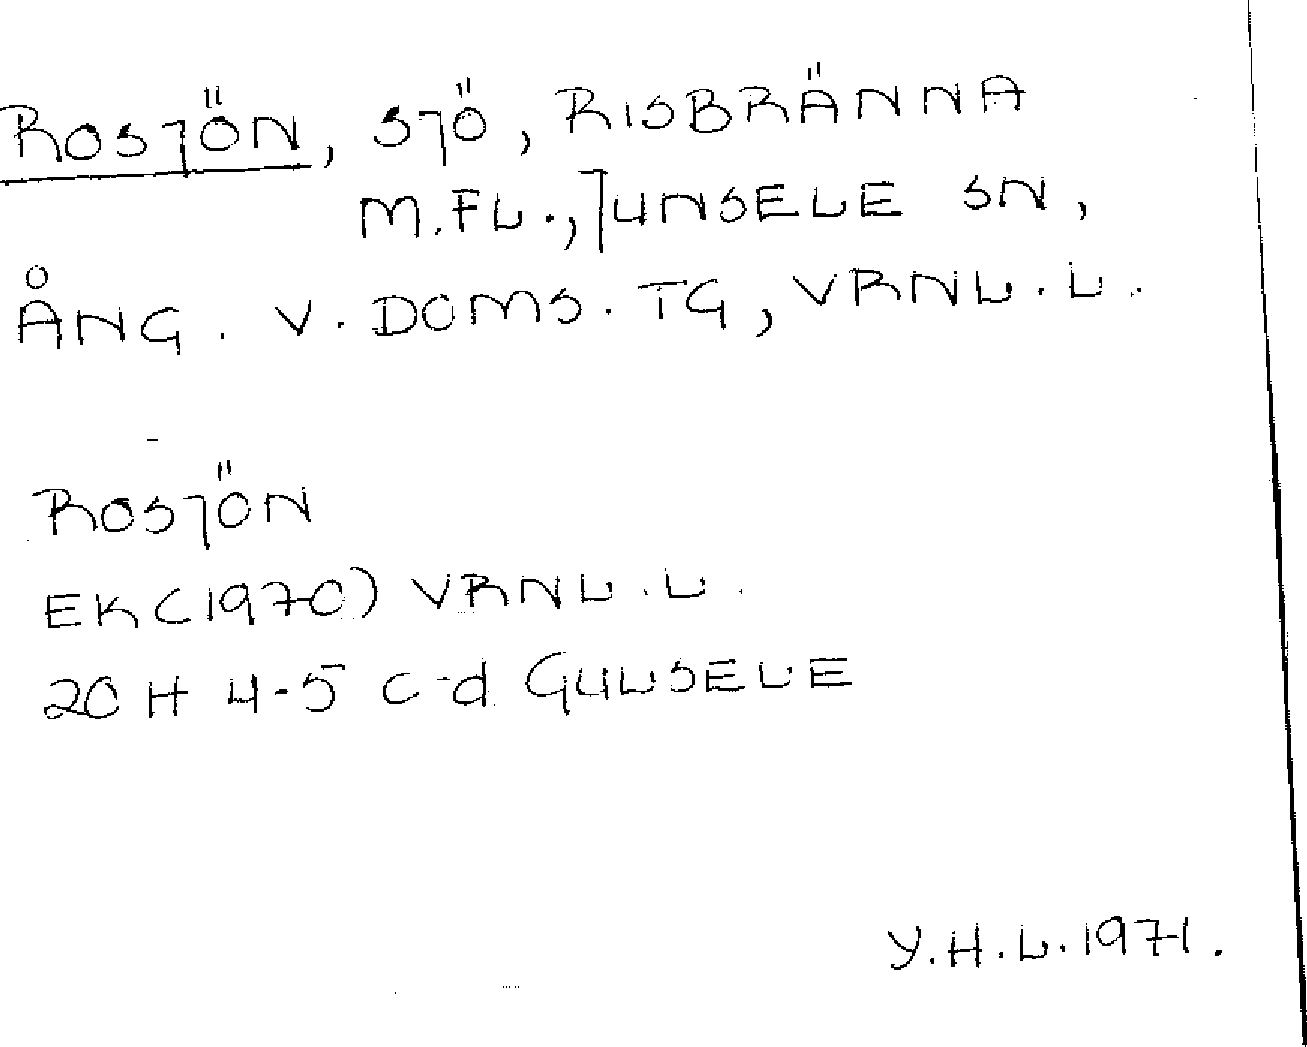 ROSJÖN, SJÖ, RISBRÄNNA
M.FL., JUNSELE SN,
ÅNG. V. DOMS. TG, VRNL. L.
ROSJÖN
EK (1970) VRNL. L.
20 H 4-5 c-d GULSELE
Y.H.L. 1971.